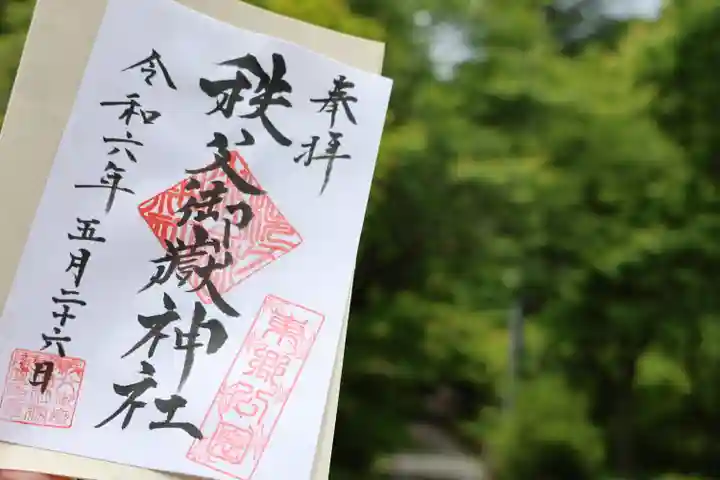 奉拝
秩父御嶽神社
令和六年
五月二十六日
東郷公園